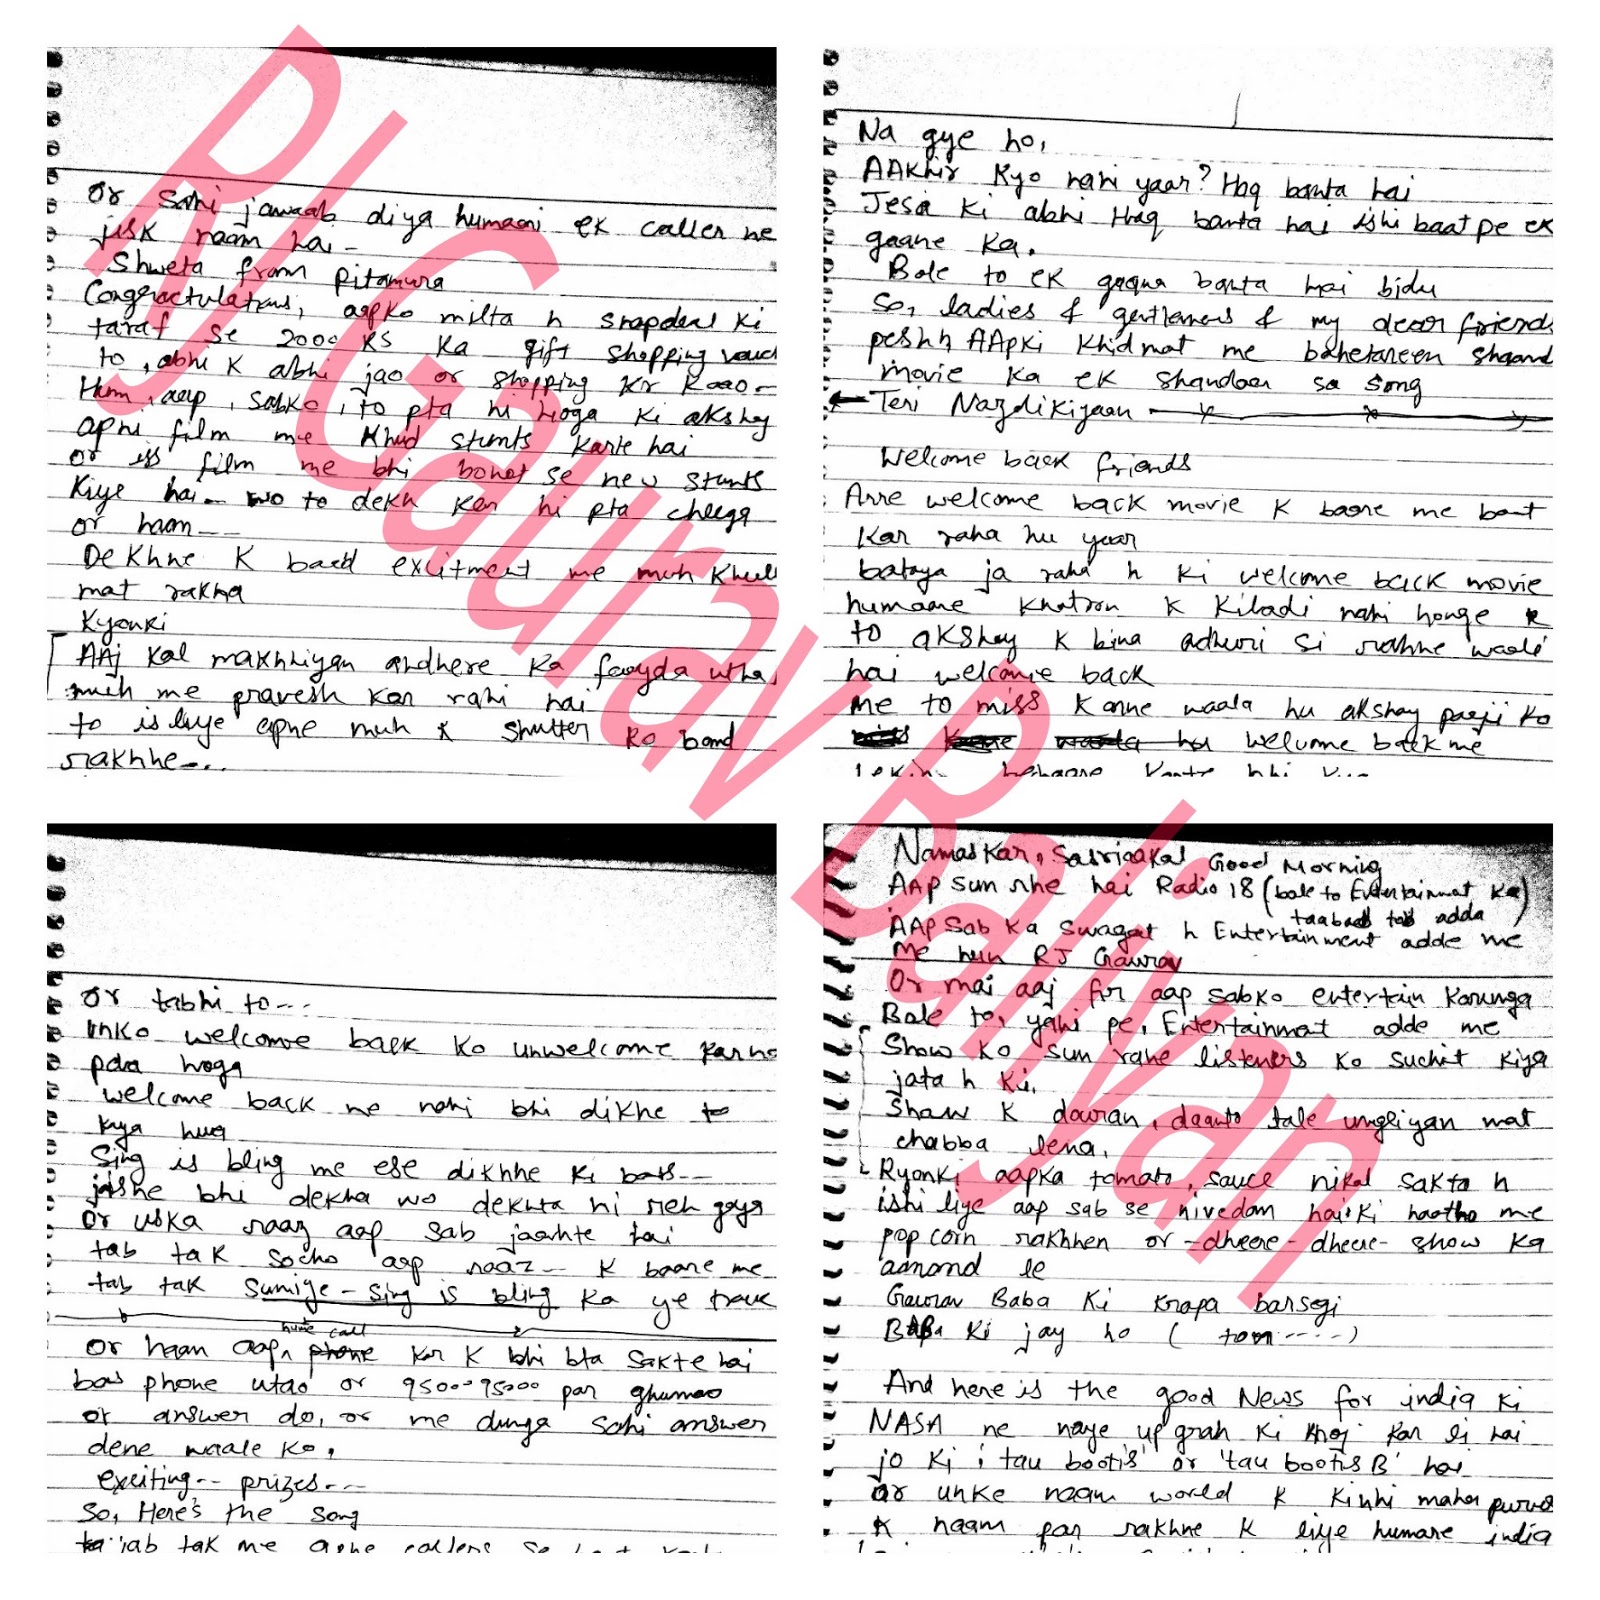 or sahi jawaab diya humaari ek caller ne
jisk naam hai -
Shweta from Pitampura
Congractulations, aapko milta h snapdeal ki
taraf se 2000 RS ka gift shopping vouch
to, abhi k abhi jao or shopping kr Kaao -
Hum, aap, sabko, to pta hi hoga ki akshay
apni film me khud stunts karte hai
or iss film me bhi bohot se new stunts
kiye hai -- wo to dekh kar hi pta chlega
or haan ---
Dekhne k baad exlitment me muh khull
mat rakha
kyonki
AAj kal makhhiyan andhere ka faayda utha
muh me pravesh kar rahi hai
to is liye apne muh k shutter ko band
rakhhe --..
Na gye ho,
AAkhir kyo nahi yaar? Haq banta hai
Jesa ki abhi Haq banta hai ishi baat pe ek
gaane ka.
Bole to ek gaana banta hai bidu
So, ladies & gentlemens & my dear friends
pesh h AApki khidmat me behetareen shaand
movie ka ek shandaar sa song
Teri Nazdikiyaan
Welcome back friends
Arre welcome back movie k baare me baat
kar raha hu yaar
bataya ja raha h ki welcome back movie
humaare khatron k kiladi nahi honge
to akshay k bina adhuri si rahne waali
hai welcome back
me to miss karne waala hu akshay paaji ko
welcome back me
or tabhi to ---
unko welcome back ko unwelcome karna
pda hoga
welcome back me nahi bhi dikhe to
kya hua
Sing is bling me ese dikhhe ki bas --
jisne bhi dekha wo dekhta hi reh gaya
or uska raaz aap sab jaante hai
tab tak socho aap raaz -- k baare me
tab tak suniye - Sing is bling ka ye track
hume call
or haan aap, phone kar k bhi bta sakte hai
bas phone utao or 9500095000 par ghumao
or answer do, or me dunga sahi answer
dene waale ko,
exciting -- prizes ---
So, Here's the song
jab tak me apne callers se
Namaskar, Sasriaakal Good Morning
AAP sun rhe hai Radio 18 (bole to Entertainmat ka
adda)
AAP sab ka swagat h Entertainment adde me
Me hun RJ Gaurav
Or mai aaj fir aap sabko entertain karunga
Bole to, yahi pe, Entertainmat adde me
Show ko sun rahe listeners ko suchit kiya
jata h ki,
Show k dauran, daanto tale ungliyan mat
chabba lena,
Kyonki aapka tomato, sauce nikal sakta h
ishi liye aap sab se nivedan hai ki haatho me
popcorn rakhhen or -dheere-dheere- show ka
aanand le
Gaurav Baba ki krapa barsegi
BABa ki jay ho ( ton ----)
And here is the good News for india ki
NASA ne naye upgrah ki khoj kar li hai
jo ki 'tau bootis' or 'tau bootis B' hai
or unke naam world k kinhi maha purus
k naam par rakhne k liye humare india
RJ Gaurav Baliyan